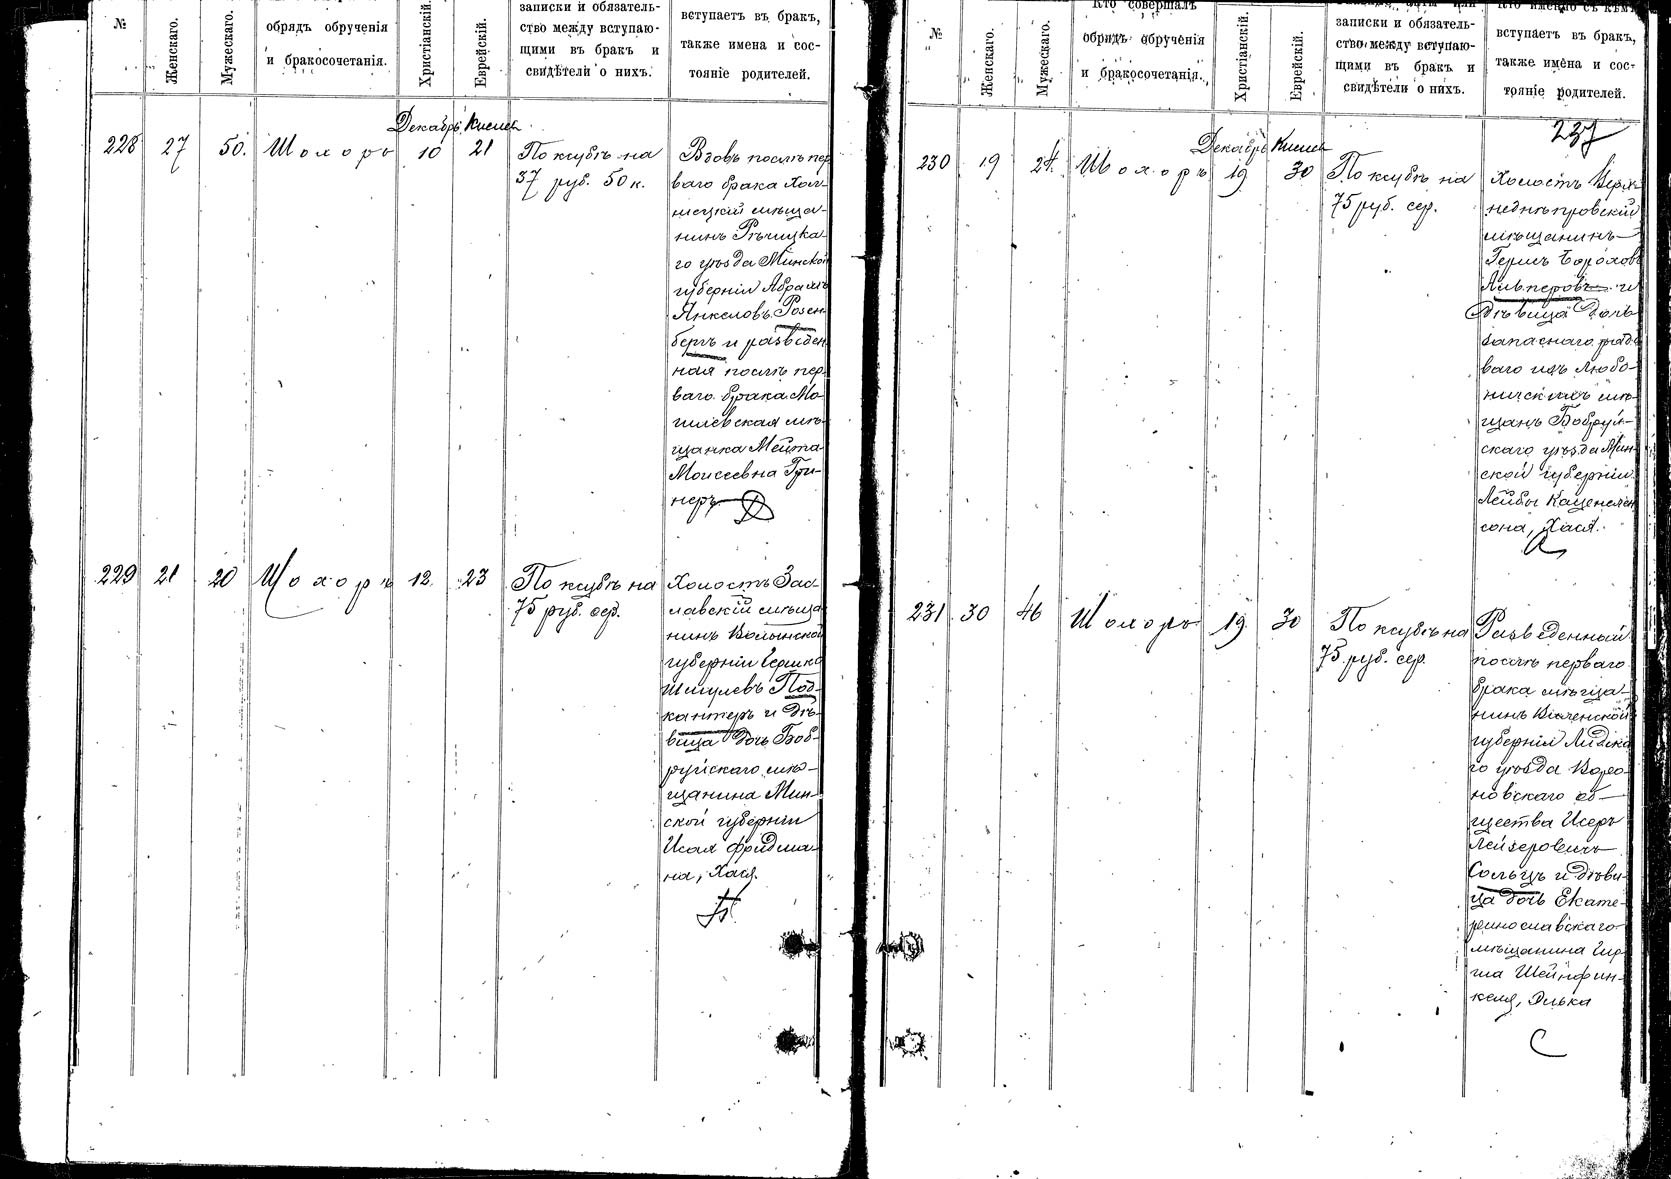 №
Женскаго.
Мужескаго.
обрядъ обрученія
и бракосочетанія.
Христіанскій.
Еврейскій.
записки и обязатель-
ство между вступаю-
щими въ бракъ и
свидѣтели о нихъ.
вступаетъ въ бракъ,
также имена и сос-
тояніе родителей.
Декабрь Кислев
228 27 50. Шохоръ 10 21
По ктубѣ на
37 руб. 50 к.
Вдовъ послѣ пер
ваго брака Хой-
ницкій мѣща-
нинъ Рѣчицка-
го уѣзда Минской
губерніи Абрамъ
Янкелевъ Розен-
бергъ и разведен
ная послѣ пер
ваго брака Мо-
гилевская мѣ-
щанка Мейта
Моисеевна Гри-
неръ
229 21 20 Шохоръ 12 23
По ктубѣ на
75 руб. сер.
Холостъ Зас-
лавскій мѣща
нинъ Волынской
губерніи Гершко
Шмулевъ Под-
канторъ и дѣ-
вица дочь Боб-
руйскаго мѣ-
щанина Мин-
ской губерніи
Исая Фридма-
на, Хася.
№
Женскаго.
Мужескаго.
Кто совершалъ
обрядъ обрученія
и бракосочетанія.
Христіанскій.
Еврейскій.
записки и обязатель-
ство между вступаю-
щими въ бракъ и
свидѣтели о нихъ.
кто именно съ кѣмъ
вступаетъ въ бракъ,
также имена и сос-
тояніе родителей.
237
Декабрь Кислев
230 19 24. Шохоръ 19 30
По ктубѣ на
75 руб. сер.
Холостъ Верх-
неднѣпровскій
мѣщанинъ
Гершъ Бороховъ
Альперовъ и
дѣвица дочь
запаснаго рядо
ваго изъ Любо-
ничскихъ мѣ-
щанъ Бобруй-
скаго уѣзда Мин-
ской губерніи
Лейбы Каценелен
сона, Хася.
231 30 46 Шохоръ 19 30
По ктубѣ на
75 руб. сер.
Разведенный
послѣ перваго
брака мѣща-
нинъ Виленской
губерніи Лидска
го уѣзда Воро-
новскаго об-
щества Исеръ
Лейзеровичъ
Сольцъ и дѣви-
ца дочь Екате-
ринославскаго
мѣщанина Гир-
ша Шейнфин-
келя, Элька